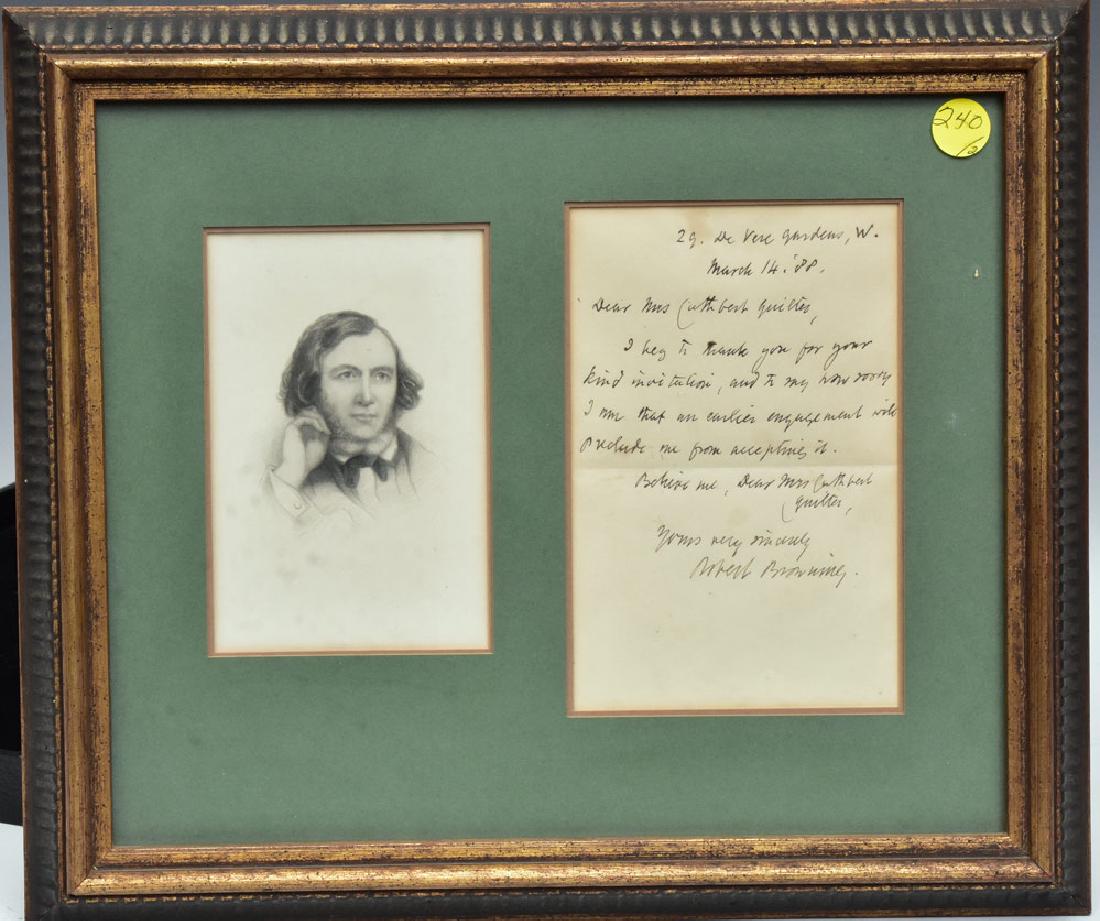 240
/2
29. De Vere Gardens, W.
March 14. '88.
Dear Mrs Cuthbert Quilter,
I beg to thank you for your
kind invitation, and to say how sorry
I am that an earlier engagement will
preclude me from accepting it.
Believe me, Dear Mrs Cuthbert
Quilter,
Yours very sincerely
Robert Browning.